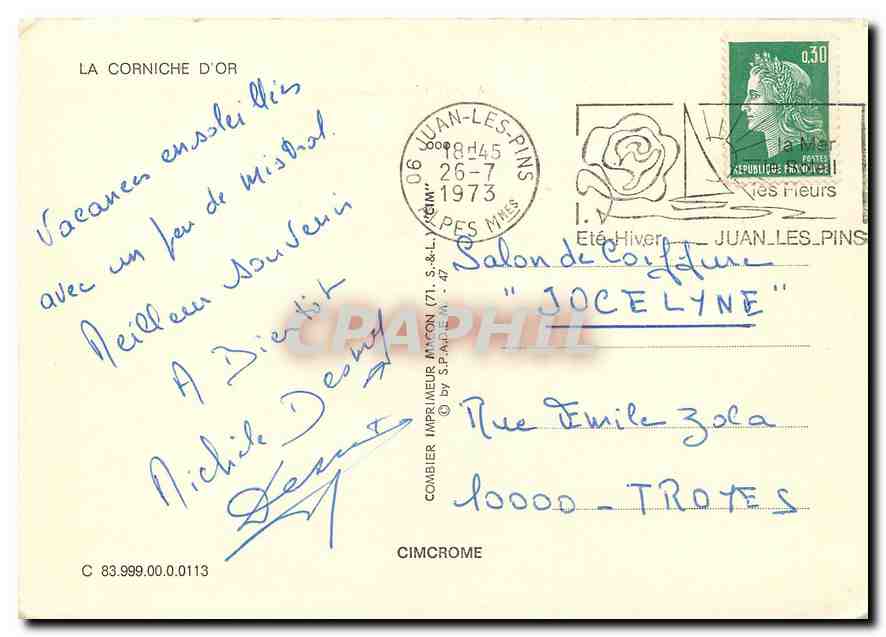 LA CORNICHE D'OR
Vacances ensoleillées
avec un peu de mistral.
Meilleur souvenir
A Bientôt
Michèle
C 83.999.00.0.0113
COMBIER IMPRIMEUR MACON (71. S.-&-L.) "CIM"
© by S.P.A.D.E.M. - 47
CIMCROME
06 JUAN-LES-PINS
18H45
26-7
1973
ALPES MMES
0,30
POSTES
REPUBLIQUE FRANCAISE
la Mer
les Fleurs
Eté-Hiver JUAN_LES_PINS
Salon de Coiffure
"JOCELYNE"
Rue Emile Zola
10000 - TROYES
CPAPHIL